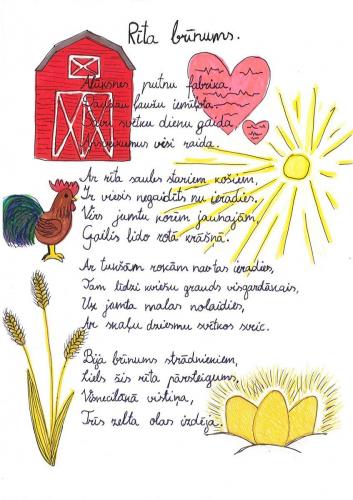 Rīta brīnums.
Alūksnes putnu fabrika,
Daudzu ļaužu iemīļota.
Savu svētku dienu gaida
Apsveikumus visi raida.
Ar rīta saules stariem košiem,
Ir viesis negaidīts nu ieradies.
Virs jumtu korēm jaunajām,
Gailis lido rotā krāšņā.
Ar tukšām rokām nav tas ieradies,
Tam līdzi kviešu grauds visgardākais,
Uz jumta malas nolaidies,
Ar skaļu dziesmu svētkos sveic.
Bija brīnums strādniekiem,
Liels šis rīta pārsteigums,
Visnecilākā vistiņa,
Trīs zelta olas izdēja.